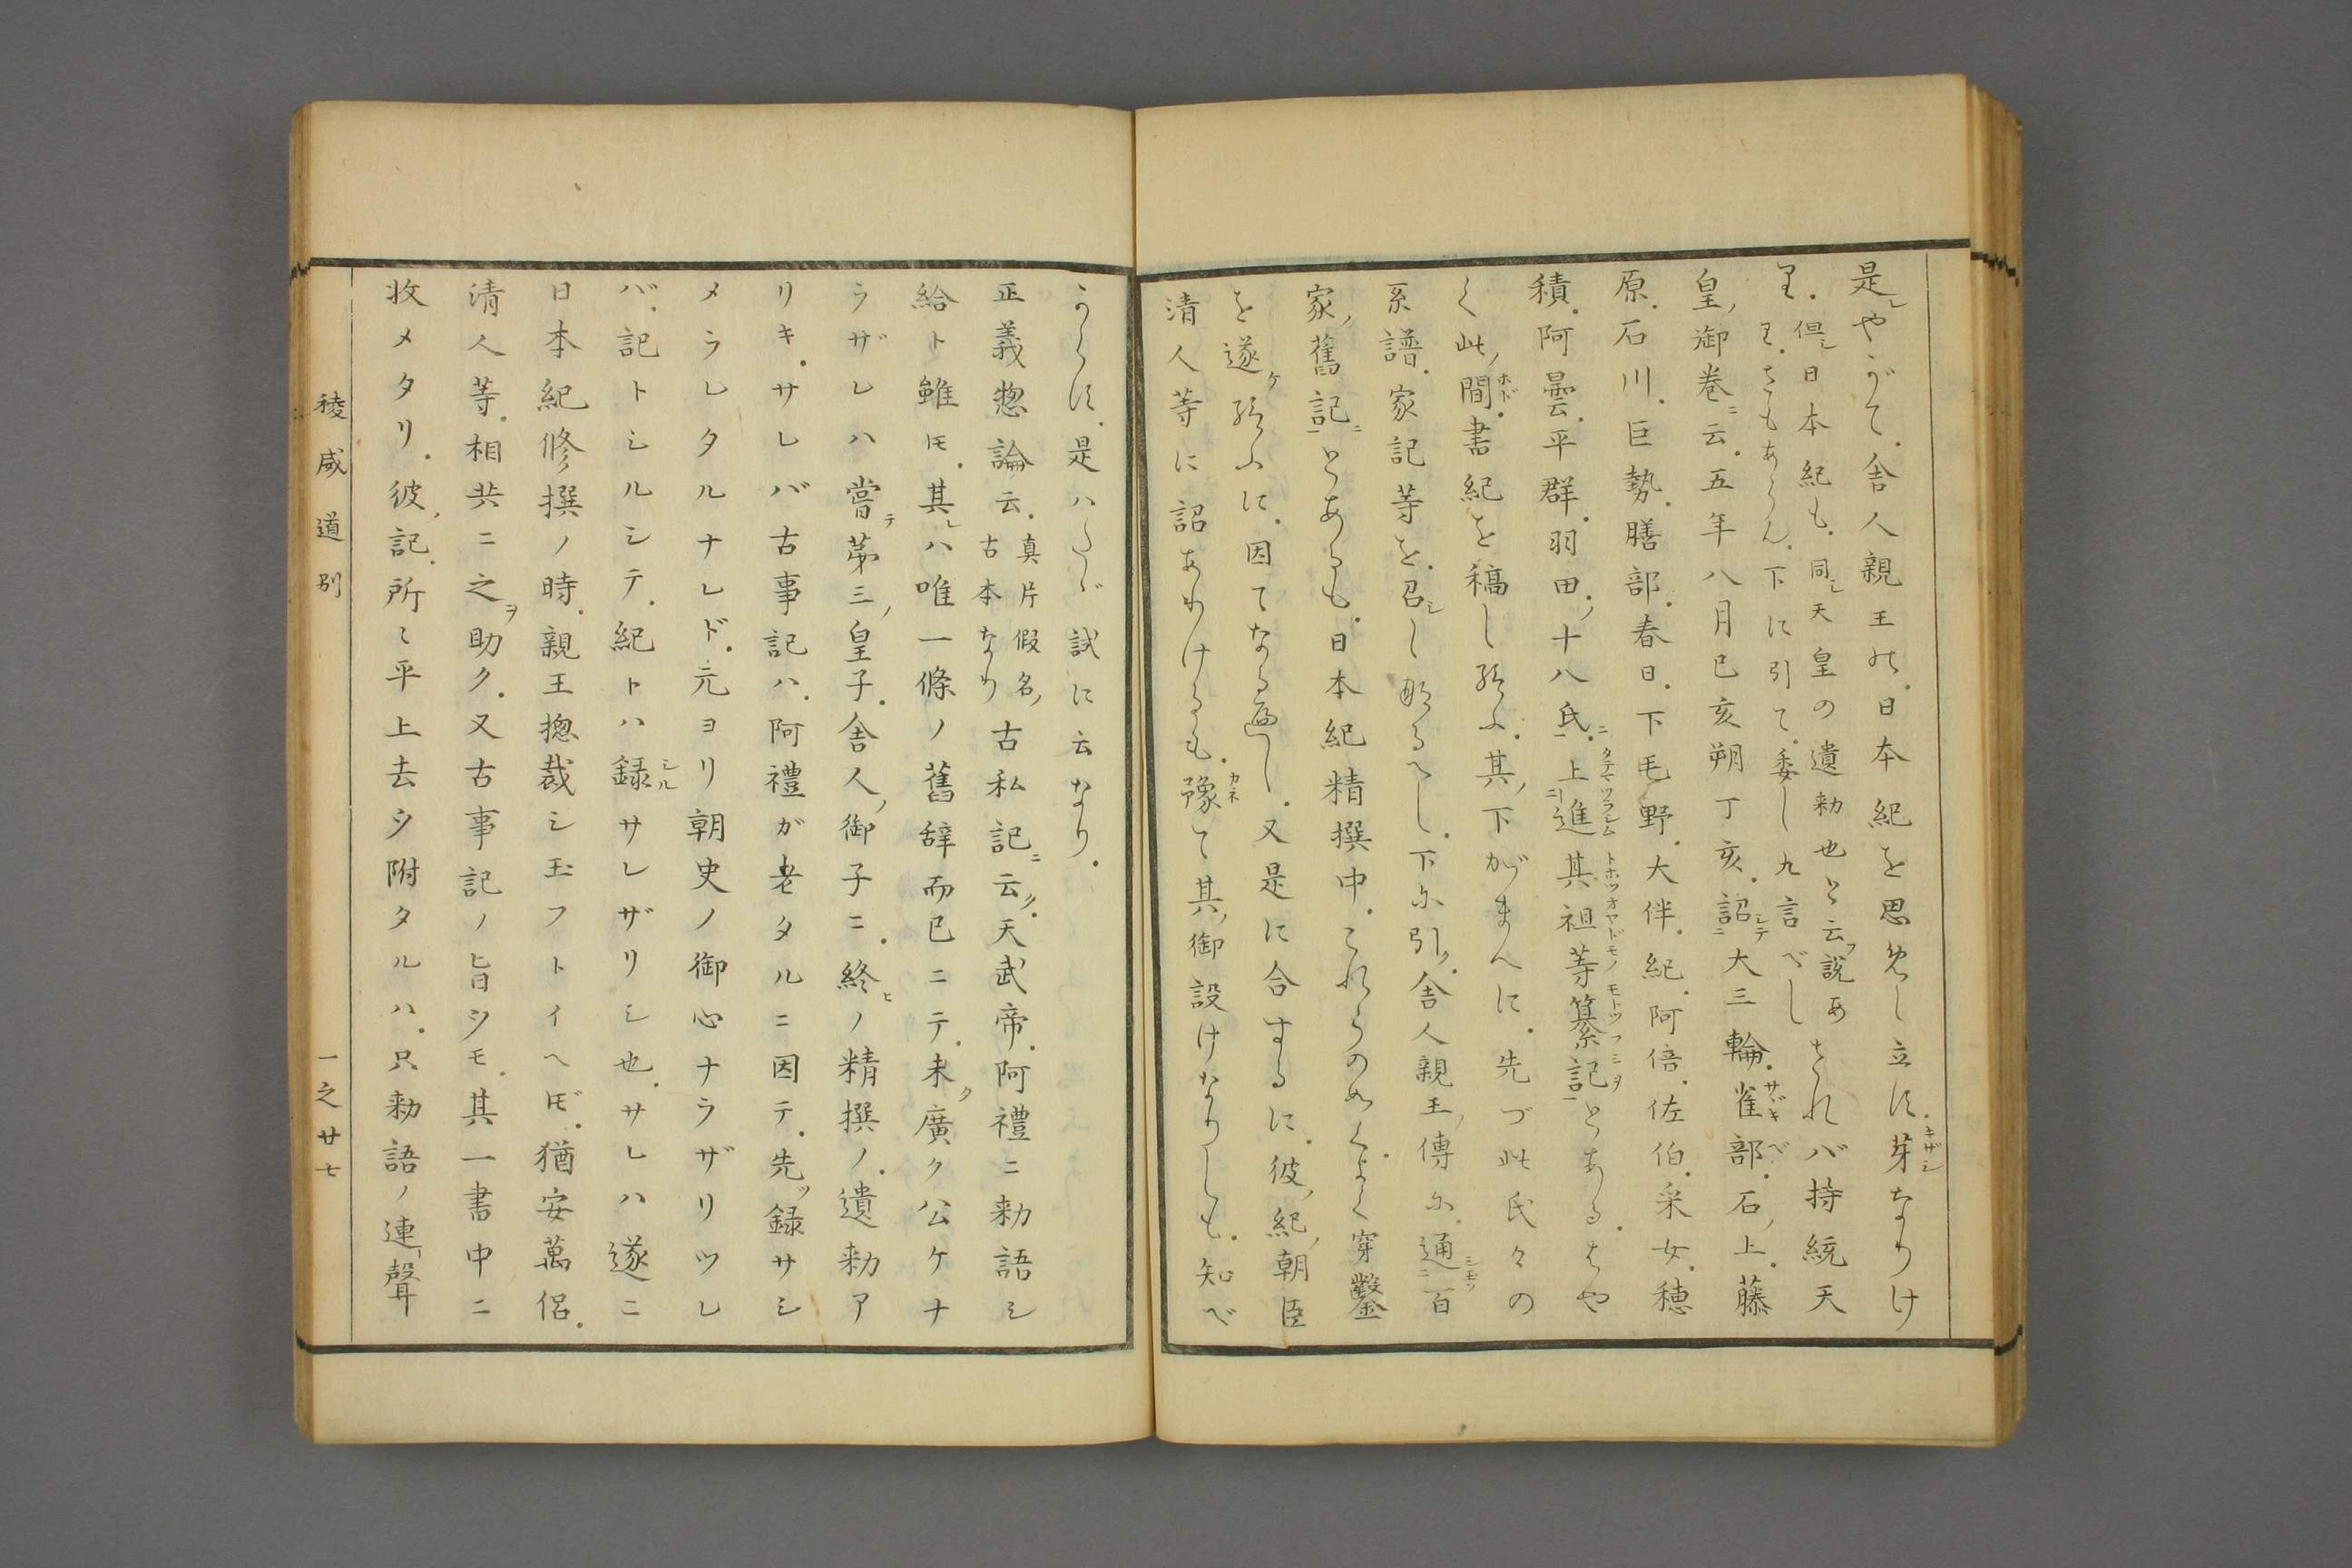 是レやがて。舎人親王の。日本紀を思免し立す。芽キザシなりけ
り。但シ日本紀も。同シ天皇の遺勅也と云フ説あ
り。さもあらん。下に引て。委し九言べし されバ持統天
皇ノ御巻ニ云。五年八月己亥朔丁亥。詔シテニ大三輪。雀サヾキ部ベ。石ノ上。藤
原。石川。巨勢。膳部。春日。下毛野。大伴。紀。阿倍。佐伯。采女。穂
積。阿曇。平群。羽田ノ。十八氏ニ一。上タテマツラシム二進其トホツオヤドモノ祖等纂モトツフミヲ記一とある。はや
く此ノ間ホド。書紀を稿し給ふ。其ノ下がまへに。先づ此氏々の
系譜。家記等を。召シし取るへし。下に引ク。舎人親王ノ傳に。通シモツニ百
家ノ舊記ニ一とあるも。日本紀精撰中。これらのめくよく穿鑿
を遂ケ給ふに。因てなる遍し。又是に合するに。彼ノ紀ノ朝臣
清人等に詔ありけるも。豫カネて其ノ御設けなりしも。知べ
からす。是ハたゞ試に云なり。
正義惣論云。真片假名ノ古本なり 古私記ニ云ク。天武帝。阿禮ニ勅語シ
給ト雖ドモ。其レハ唯一條ノ舊辞而已ニテ。未ク廣ク公ケナ
ラザレハ嘗テ第三ノ皇子。舎人ノ御子ニ。終ヒノ精撰ノ。遺勅ア
リキ。サレバ古事記ハ。阿禮ガ老タルニ因テ。先ヅ録サシ
メラレタルナレド。元ヨリ朝史ノ御心ナラザリツレ
バ。記トシルシテ。紀トハ録シルサレザリシ也。サレハ遂ニ
日本紀修撰ノ時。親王惣裁シ玉フトイヘドモ。猶安萬侶。
清人等。相共ニ之ヲ助ク。又古事記ノ旨ヲモ。其一書中ニ
收メタリ。彼ノ記。所々平上去ヲ附タルハ。只勅語ノ連聲
稜威道別
一之廿七